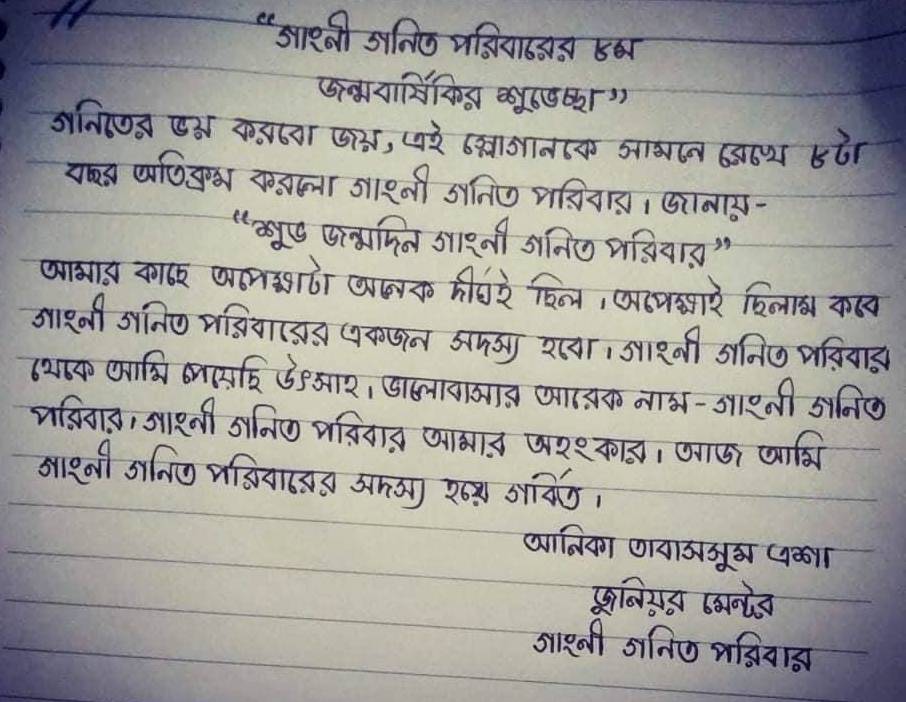 “গাংনী গনিত পরিবারের ৮ম
জন্মবার্ষিকির শুভেচ্ছা”
গনিতের ভয় করবো জয়, এই স্লোগানকে সামনে রেখে ৮টা
বছর অতিক্রম করলো গাংনী গনিত পরিবার। জানায়-
“শুভ জন্মদিন গাংনী গনিত পরিবার”
আমার কাছে অপেক্ষাটা অনেক দীর্ঘই ছিল। অপেক্ষাই ছিলাম কবে
গাংনী গনিত পরিবারের একজন সদস্য হবো। গাংনী গনিত পরিবার
থেকে আমি পেয়েছি উৎসাহ। ভালোবাসার আরেক নাম - গাংনী গনিত
পরিবার। গাংনী গনিত পরিবার আমার অহংকার। আজ আমি
গাংনী গনিত পরিবারের সদস্য হয়ে গর্বিত।
আনিকা তাবাসসুম এশা
জুনিয়র মেন্টর
গাংনী গনিত পরিবার